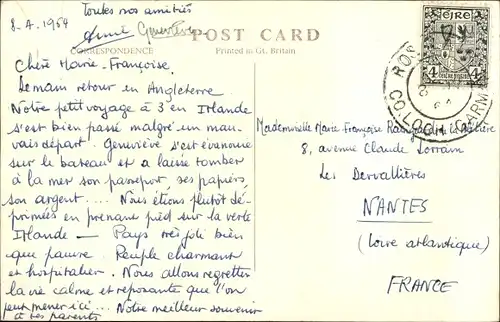 8-4-1964
Toutes nos amitiés
Annie Geneviève
POST CARD
CORRESPONDENCE
Printed in Gt. Britain
Chère Marie-Françoise
Demain retour en Angleterre
Notre petit voyage à 3 en Irlande
s'est bien passé malgré un mau-
vais départ. Geneviève s'est évanouie
sur le bateau et a laissé tomber
à la mer son passeport, ses papiers,
son argent.... Nous étions plutôt dé-
primées en prenant pied sur la verte
Irlande — Pays très joli bien
que pauvre. Peuple charmant
et hospitalier. Nous allons regretter
la vie calme et reposante que l'on
peut mener ici... Notre meilleur souvenir
à tes parents
éIRe
4
ROS
CO. LOCH GARM
Mademoiselle Marie Françoise
8, avenue Claude Lorrain
Les Dervallières
NANTES
(Loire atlantique)
FRANCE